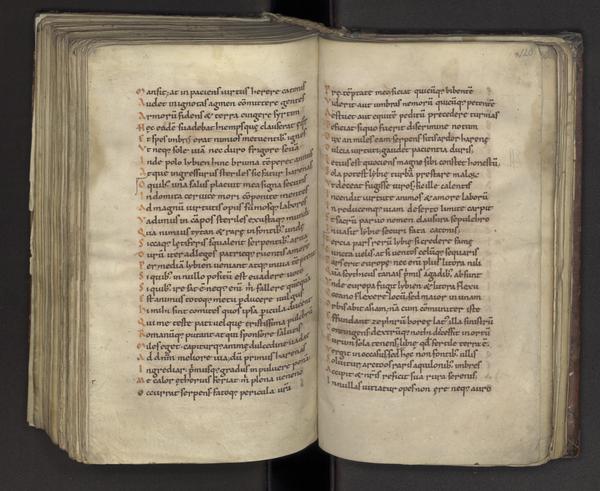 Mansit; at inpaciens uirtus herere catonis
Audet inignotas agmen cōmittere gentes
Armorū fidens & terra cingere syrtim
Hec eadē suadebat hiemps que clauserat
Et spes imbres erat nimios metuentib; ignes
Vt neq; sole uiā nec duro frigore seuā
Inde polo lybies hinc bruma tēperet annus
Atque ingressurus steriles sic fatur harenas
O quib; una salus placuit mea signa secutis
Indomita ceruice mori cōponite mentes
Ad magnū uirtutis opus sūmosq; labores
Vadimus in cāpos steriles exustaq; mundi
Qua nimius tytan & rare infontib; unde
Siccaq; letiferis squalent serpentib; arua
Durū iter adleges patrieq; ruentis amore
Per mediā lybien ueniant atq; inuia tēptent
Siquib; in nullo positū est euadere uoto
Siquib; ire sat ē neq; enī m̄ fallere quēquā
Est animus tectoq; metu pducere uulgus
Hi mihi sint comites quos ipsa picula ducent
Qui me teste pati uel que tristissima pulchrū
Romanūq; putant; at qui sponsore salutis
Miles eget capiturq; animę dulcedine uadat
Ad dn̄m meliore uia; dū primus harenas
Ingrediar p̄musq; gradus in puluere ponā
Me calor ethereus feriat m̄ plena ueneno
Occurrat serpens fatoq; pericula ur̄a
120
tēptate meo sitiat quicūq; bibentē
Viderit aut umbras nemorū quicūq; petentē
Aestuet aut equitē peditū precedere turmas
Deficiat siquo fuerit discrimine notum
Dux an miles eam serpens sitis ardor harene
Dulcia uirtuti; gaudet pacientia duris
Letius est quociens magno sibi constet honestū
Sola potest lybie turbā prestare maloꝝ
Vt deceat fugisse uiros; sic ille calentis
Incendit uirtute animos & amore laborū
Inreducemq; uiam deserto limite carpit
Et sacrū paruo nomen clausura sepulchro
Inuasit lybie securi fata catonis;
Tercia pars rerū lybie si credere fame
Cuncta uelis at si uentos celūq; sequaris
Pars erit europe nec enī plus litora nili
Quā scythicus tanais pmis agadib; absunt
Vnde europa fugit lybien & litora flexu
Oceano flexere locū; sed maior in unam
Orbis abit asiam; nā cum cōmuniter iste
Effundant zephirū boreę lat; illa sinistrū
Contingens dextrūq; nothi discedit inortū
Eurum sola tenens; libyę qd̄ fertile terre ē
Vergit inoccasus; sed hec non fontib; ullis
Soluitur arctoos raris aquilonib; imbres
Accipit & nr̄is reficit sua rura serenis;
In nullas uitiatur opes non ere neq; auro